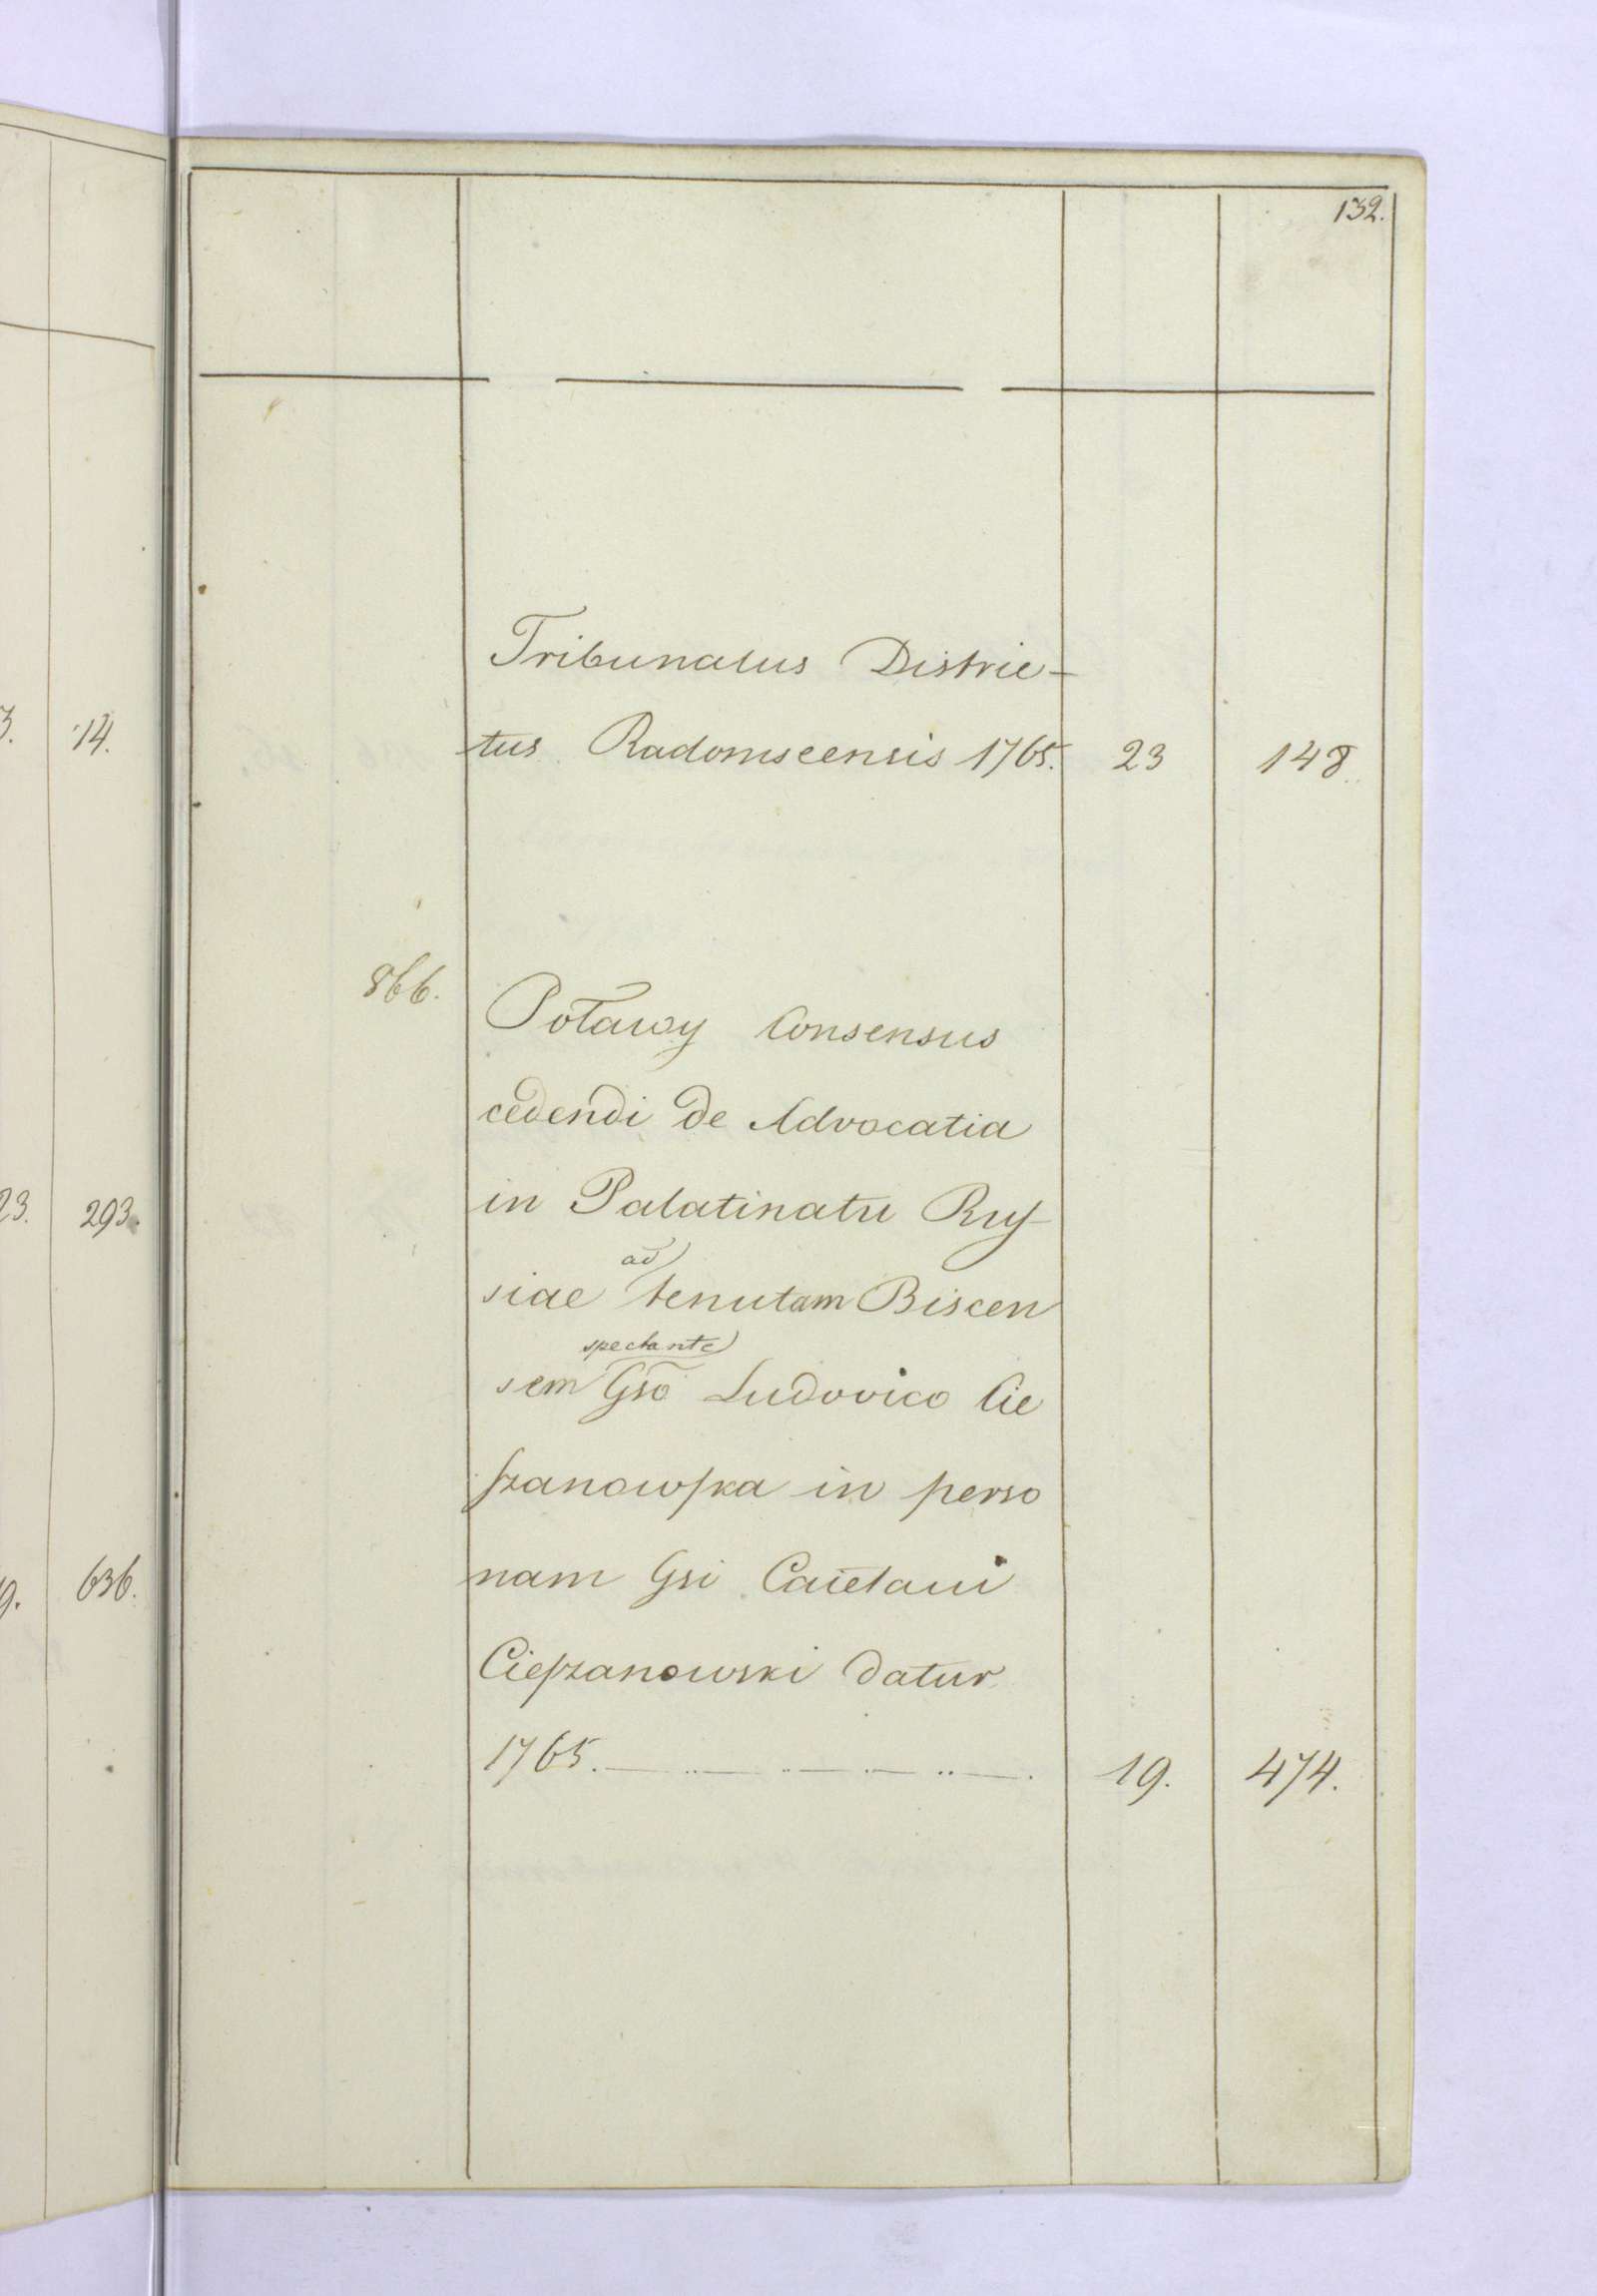 132.
3. 14.
Tribunalus Distric-
tus Radomscensis 1765. 23 148.
866.
Poławy Consensus
cedendi de Advocatia
23. 293.
in Palatinatu Rus-
ad
siae tenutam Biscen
spectante
sem Gso Ludovico Cie
szanowska in perso
nam Gsi Caietani
9. 636.
Cieszanowski datur
1765. 19. 474.